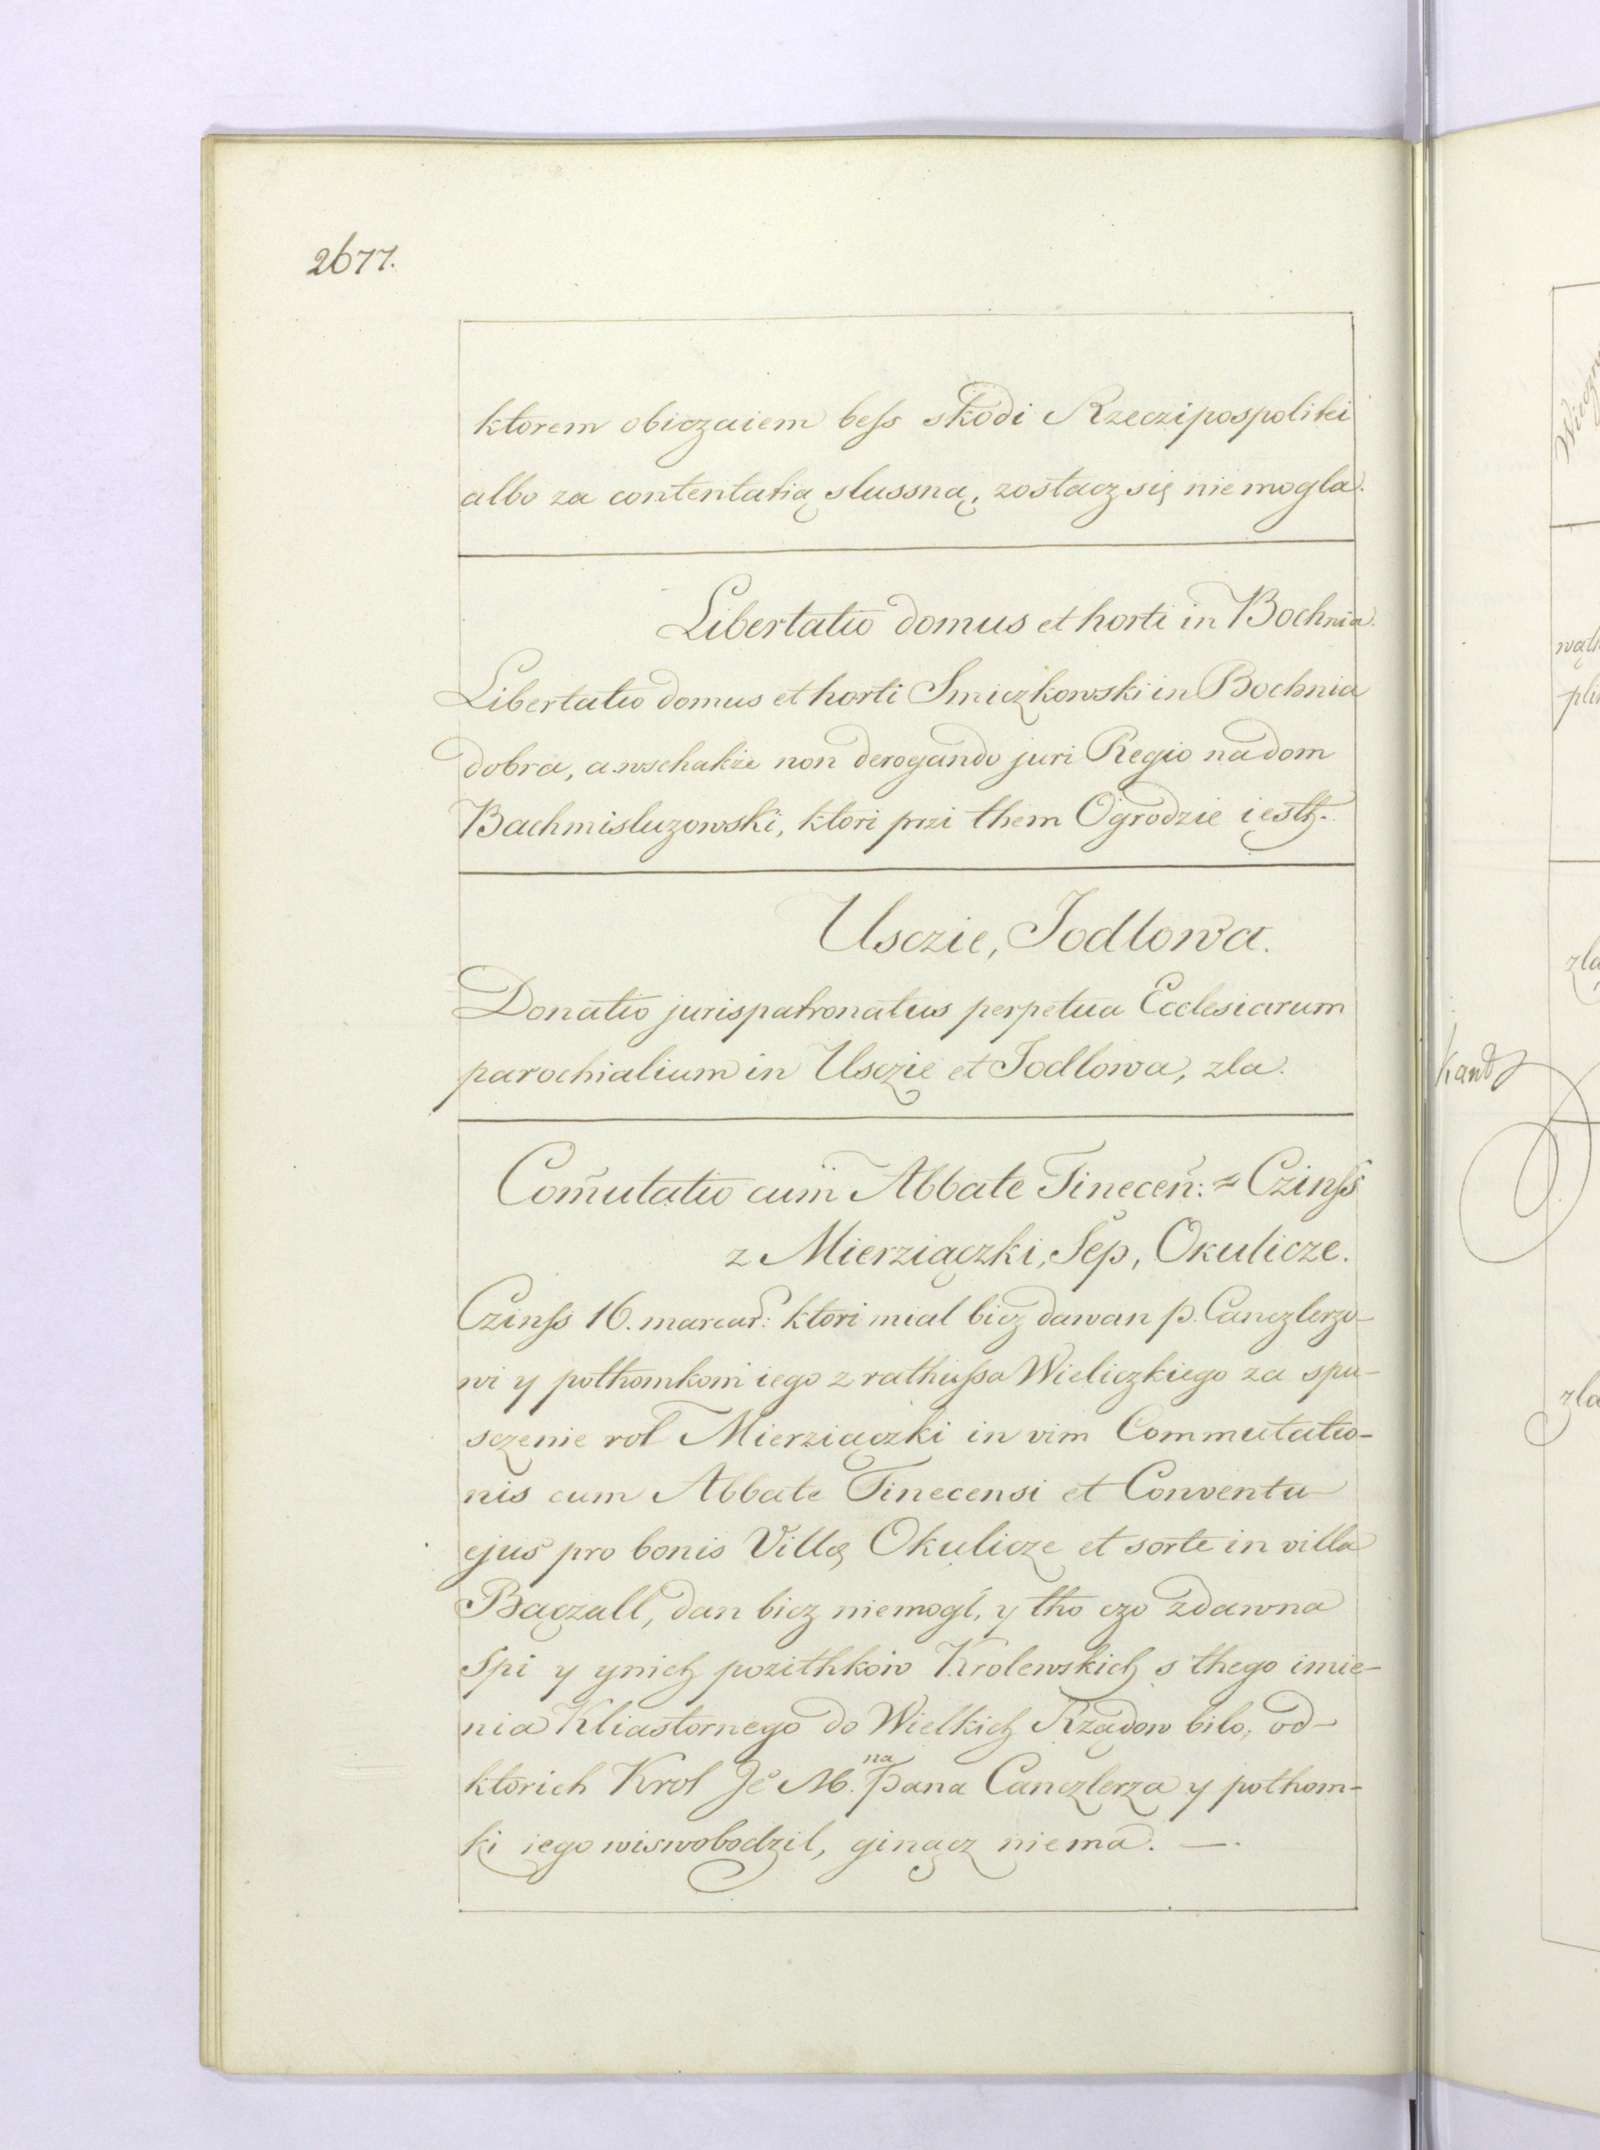 2677.
ktorem obiczaiem bess skodi Rzeczipospolitei
albo za contentatią slussną, zostacz się niemogla.
Libertatio domus et horti in Bochnia.
Libertatio domus et horti Smiczkowski in Bochnia
dobra, a wschakże non derogando juri Regio na dom
Bachmisluzowski, ktori przi them Ogrodzie iesth.
Usczie, Jodlowa.
Donatio jurispatronatus perpetua Ecclesiarum
parochialium in Usczie et Jodlowa, zla.
Com̃utatio cum Abbate Tinecen̄: Czinss
z Mierziączki, Sep, Okulicze.
Czinss 16. marcar: ktori mial bicz dawan p. Canczlerzo-
wi y pothomkom iego z rathussa Wieliczkiego za spu-
sczenie rol Mierziączki in vim Commutatio-
nis cum Abbate Tinecensi et Conventu
ejus pro bonis Villę Okulicze et sorte in villa
Bączall, dan bicz niemogl, y tho czo zdawna
Spi y ynich pozithkow Krolewskich s thego imie-
nia Kliastornego do Wielkich Rządow bilo, od-
ktorich Krol Je M. na Pana Canczlerza y pothom-
ki iego wiswobodzil, ginącz niema. —.
kand
wąl
pli
zla
zla